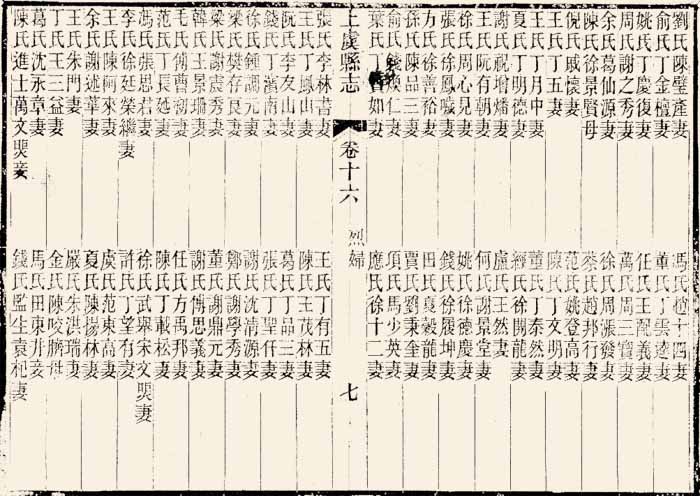 劉氏陳璧產妻
俞氏丁金壇妻
姚氏丁慶復妻
周氏謝之秀妻
余氏葛仙源妻
陳氏徐景賢母
倪氏戚懷妻
王氏丁五妻
王氏丁月中妻
夏氏丁明德妻
謝氏祝增燔妻
王氏阮有朝妻
徐氏周心見妻
張氏徐鳳噦妻
方氏徐善裕妻
孫氏陳品三妻
俞氏錢煥仁妻
葉氏丁曾如妻
馮氏趙十四妻
董氏丁雲達妻
任氏王配義妻
萬氏周三寶妻
徐氏周漲發妻
蔡氏趙邦行妻
范氏姚登高妻
陳氏丁文明妻
董氏丁泰然妻
經氏徐開龍妻
盧氏王然妻
何氏謝景堂妻
姚氏徐德慶妻
錢氏徐履坤妻
田氏夏穀龍妻
賈氏劉秉奎妻
項氏馬少英妻
應氏徐十二妻
上虞縣志
卷十六
烈婦
七
張氏李林書妻
王氏丁鳳山妻
阮氏李友山妻
錢氏丁濱南妻
徐氏鍾調元妻
梁氏樊存良妻
梁氏謝震秀妻
韓氏王景珊妻
毛氏傅曹初妻
范氏丁長延妻
馮氏張思君妻
李氏徐廷榮繼妻
王氏陳阿來妻
余氏謝述華妻
丁氏朱門妻
王氏王三益妻
葛氏沈永章妻
陳氏進士萬文煚妾
王氏丁有五妻
陳氏王茂林妻
葛氏丁品三妻
張氏丁聖仟妻
謝氏沈清源妻
鄭氏謝學秀妻
董氏謝鼎元妻
謝氏傅思義妻
任氏方禹邦妻
陳氏丁載松妻
徐氏武舉宋文煚妻
許氏丁望有妻
虞氏范東高妻
夏氏陳揚林妻
嚴氏朱洪瑞妻
金氏陳咬臍母
馬氏田東井妾
錢氏監生袁杞妻